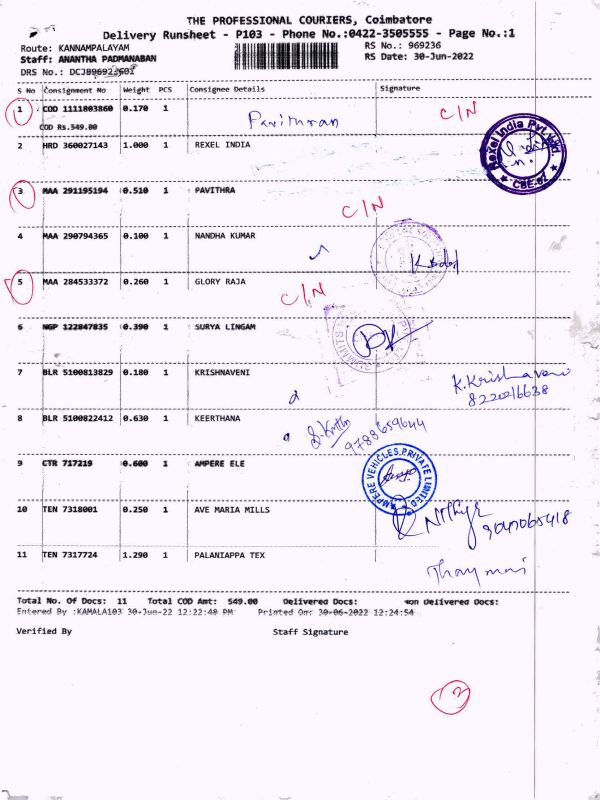 THE PROFESSIONAL COURIERS, Coimbatore
Delivery Runsheet - P103 - Phone No.:0422-3505555 - Page No.:1
Route: KANNAMPALAYAM
RS No.: 969236
Staff: ANANTHA PADMANABAN
RS Date: 30-Jun-2022
DRS No.:
S No Consignment No Weight PCS Consignee Details Signature
1 COD 1111803860 0.170 1 Pavithran C/N
COD Rs.549.00
2 HRD 360027143 1.000 1 REXEL INDIA
Rexel India Pvt Ltd. CBE
3 MAA 291195194 0.510 1 PAVITHRA
C/N
4 MAA 290794365 0.100 1 NANDHA KUMAR
5 MAA 284533372 0.260 1 GLORY RAJA
C/N
6 NGP 122847835 0.390 1 SURYA LINGAM
7 BLR 5100813829 0.180 1 KRISHNAVENI
K.Krishnaveni
8220216638
8 BLR 5100822412 0.630 1 KEERTHANA
9788659644
9 CTR 717219 0.600 1 AMPERE ELE
AMPERE VEHICLES PRIVATE LIMITED
10 TEN 7318001 0.250 1 AVE MARIA MILLS
Nithya
11 TEN 7317724 1.290 1 PALANIAPPA TEX
Total No. Of Docs: 11 Total COD Amt: 549.00 Delivered Docs: Non Delivered Docs:
Entered By :KAMALA103 30-Jun-22 12:22:48 PM Printed On: 30-06-2022 12:24:54
Verified By Staff Signature